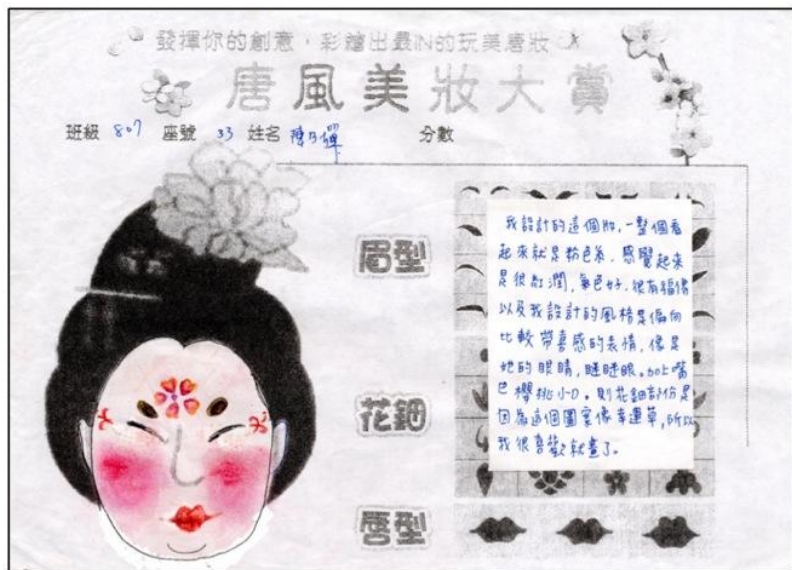 發揮你的創意，彩繪出最IN的玩美唐妝
唐風美妝大賞
班級 807 座號 33 姓名 陳乃嬋 分數
眉型
花鈿
唇型
我設計的這個妝，一整個看
起來就是粉色系，感覺起來
是很紅潤，氣色好，很有福像
以及我設計的風格是偏向
比較帶喜感的表情，像是
她的眼睛，瞇瞇眼。加上嘴
巴櫻桃小口。則花鈿部份是
因為這個圖案像幸運草，所以
我很喜歡就畫了。